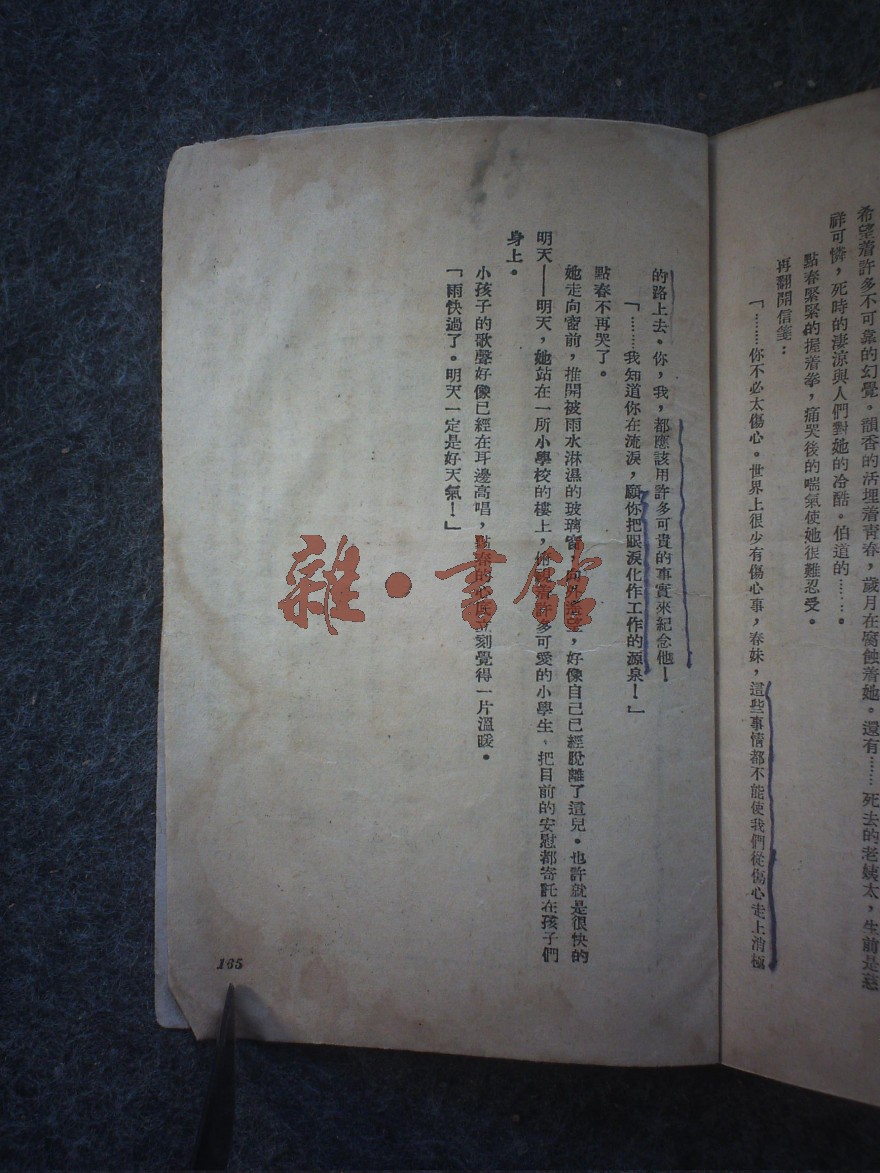 希望着許多不可靠的幻覺。韻香的活埋着青春，歲月在腐蝕着她。還有……死去的老姨太，生前是慈
祥可憐，死時的凄涼與人們對她的冷酷。伯道的……。
點春緊緊的握着拳，痛哭後的喘氣使她很難忍受。
再翻開信箋：
「……你不必太傷心。世界上很少有傷心事，春妹，這些事情都不能使我們從傷心走上消極
的路上去。你，我，都應該用許多可貴的事實來紀念他！
「……我知道你在流淚，願你把眼淚化作工作的源泉！」
點春不再哭了。
她走向窗前，推開被雨水淋濕的玻璃窗，向外遠望，好像自己已經脫離了這兒。也許就是很快的
明天——明天，她站在一所小學校的樓上，俯視着許多可愛的小學生、把目前的安慰都寄託在孩子們
身上。
小孩子的歌聲好像已經在耳邊高唱，點春的心底立刻覺得一片溫暖。
「雨快過了。明天一定是好天氣！」
165
雜·書館